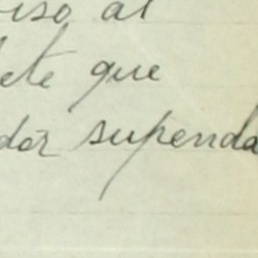 viso al
ete que
dor supenda